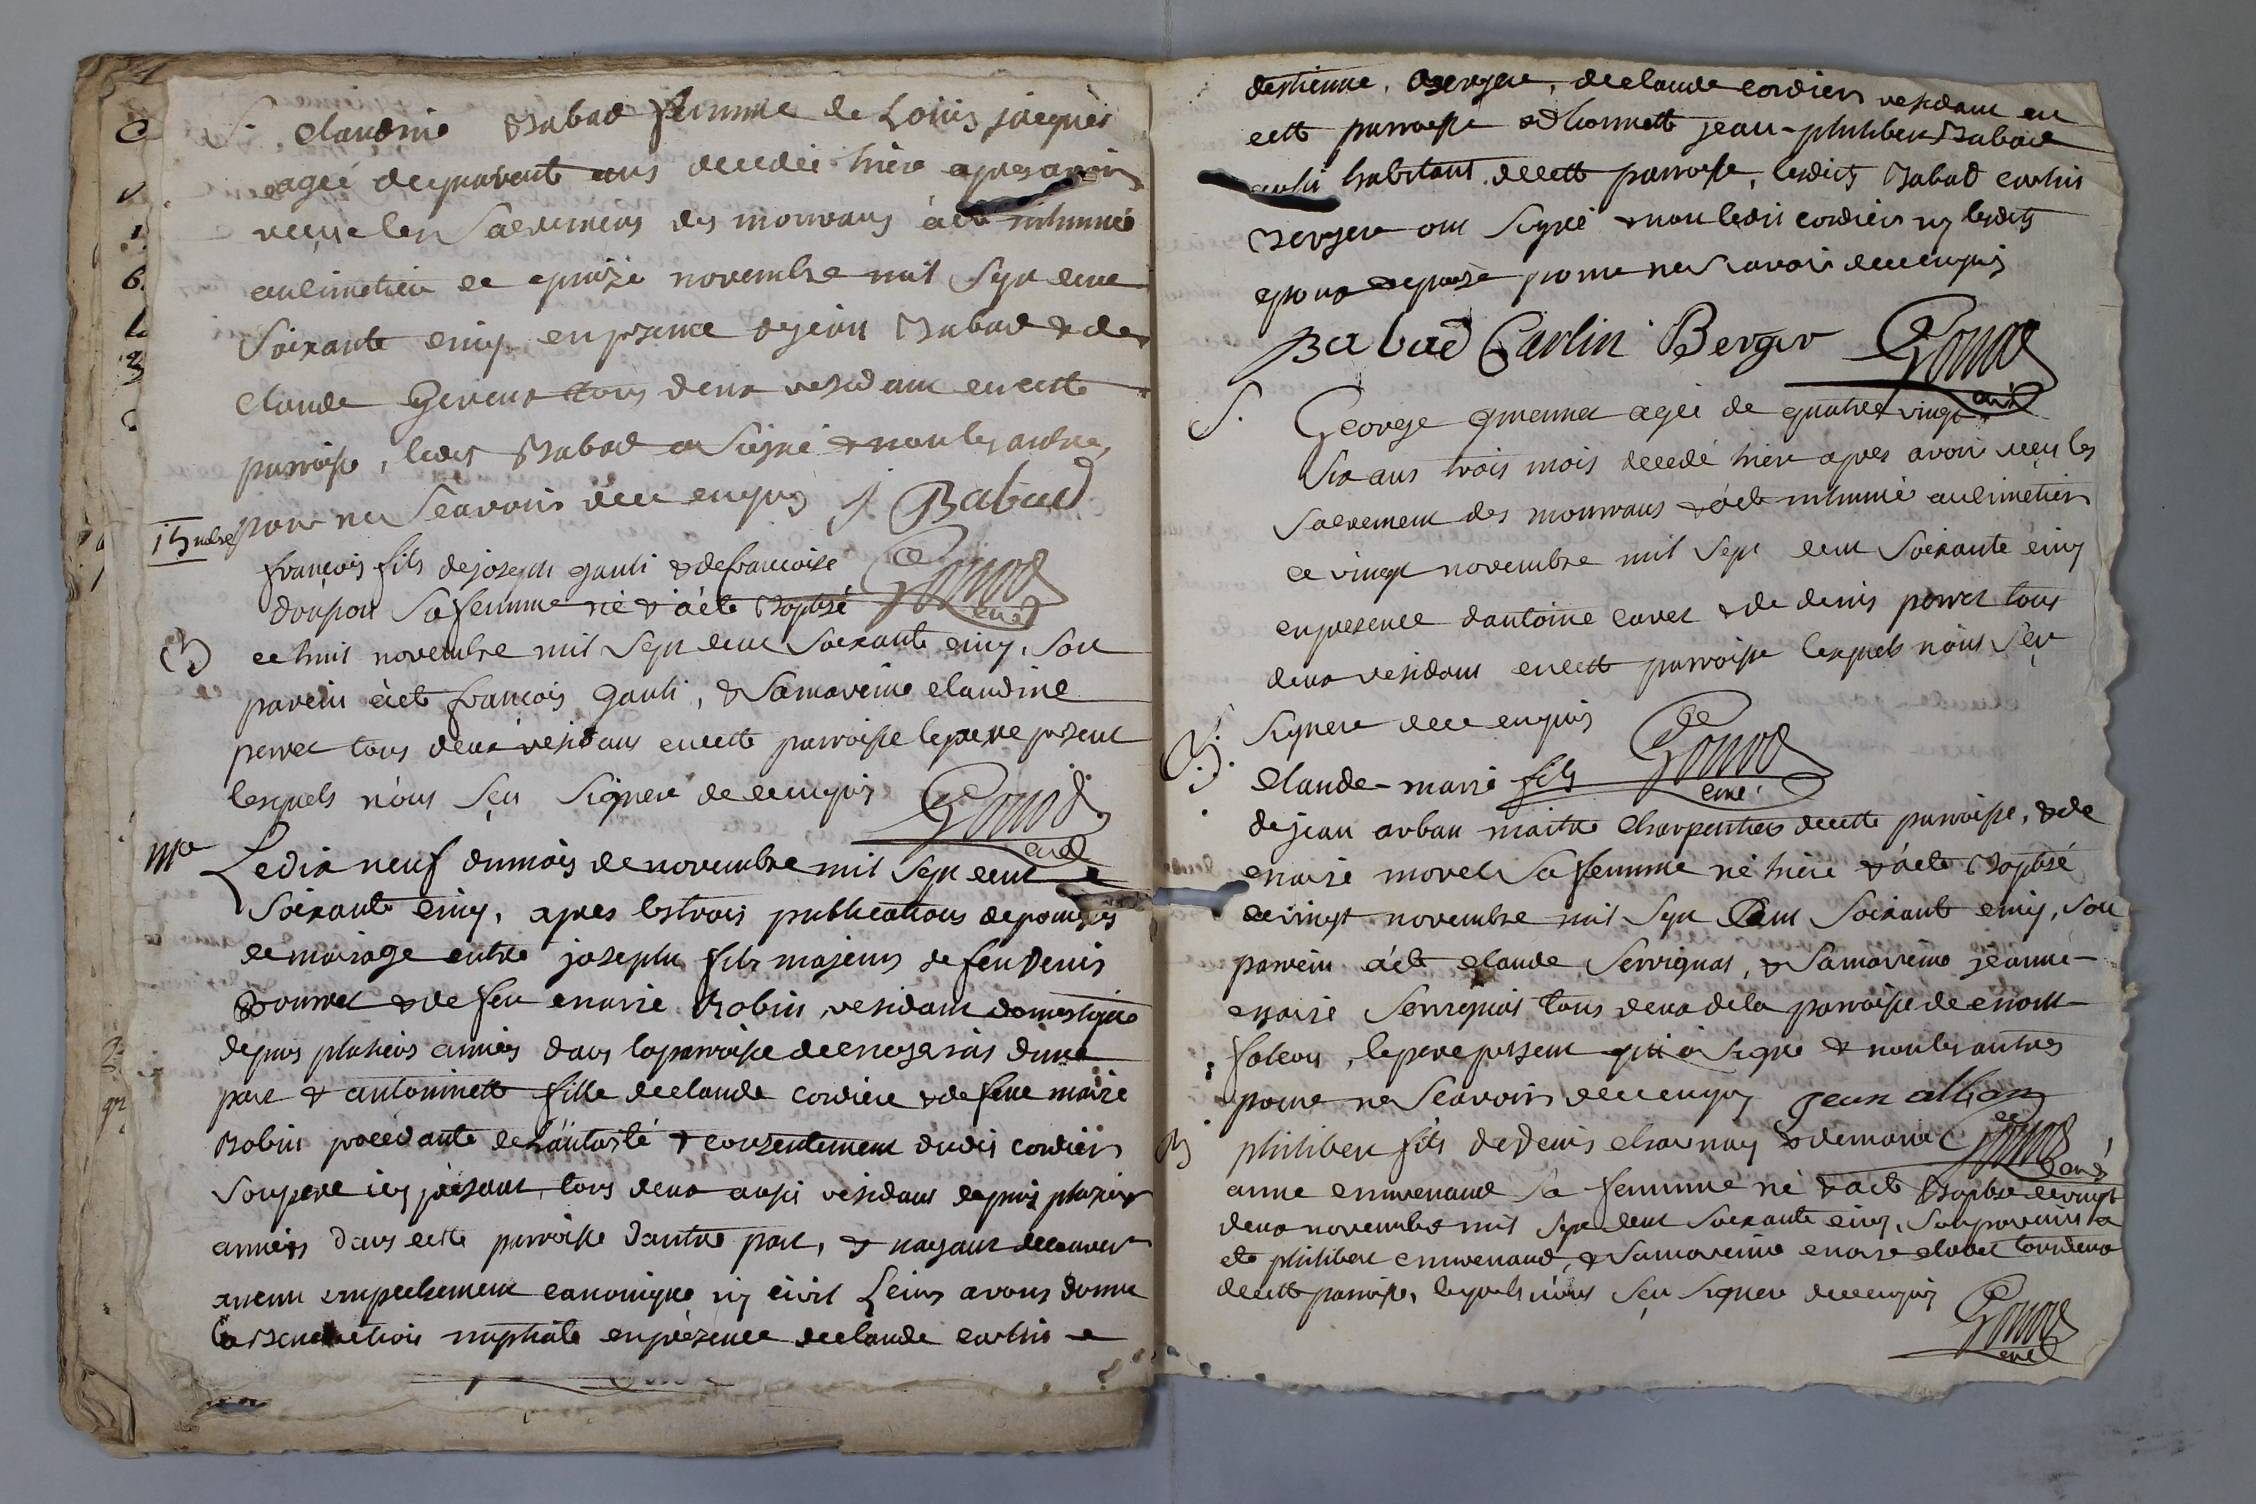 S. Claudine Babad femme de Loüis jacques
agée de quarente ans decedée hière apres avoir
recue les Sacremens des mourans à eté inhumée
au cimetiere ce quinze novembre mil Sept cent
Soixante cinq en presence de jean Babad & de
Claude tous deux residant en cette
parroisse, ledit Babad a Signé & non les autres
pour ne Scavoir de ce enquis J Babad
15 nobre
françois fils de joseph gauli & de francoise
Gonod curé
doupon Sa femme né & à eté Baptisé
B ce huit novembre mil Sept cent Soixante cinq, Son
parein à eté francois gauli, & Sa mareine claudine
perret tous deux residans en cette parroisse le pere present
lesquels n'ont Sçu Signer de ce enquis Gonod curé
Me Le dix neuf du mois de novembre mil Sept cent
Soixante cinq, apres les trois publications de promesses
de mariage entre joseph fils majeur de feu Denis
& de feu marie Robin, residant domestique
depuis plusieurs années dans la parroisse de d'une
part & antoinette fille de claude cordier & de feue marie
Robin procedante de L'autorité & consentement dudit cordier
Son pere icy présent, tous deux aussi residans depuis plusieurs
années dans cette parroisse d'autre part, & n'ayant decouvert
aucun empechement canonique ny civil Leurs avons donné
la Benediction nuptiale en présence de claude carlin
d'estienne Bergere, de claude cordier residant en
cette parroisse & d'honnette jean-philibert Babad
aussi habitant de cette parroisse, lesdits Babad carlin
Bergere ont Signé & non ledit cordier ny lesdits
epoux & epouse pour ne Scavoir de ce enquis
Babad Carlin Berger Gonod curé
S. George agée de quatre vingt
Six ans trois mois decedé hier apres avoir reçu les
Sacrement des mourans & à eté inhumé au cimetier
ce vingt novembre mil Sept cent Soixante cinq
en presence d'antoine cavet & de denis perret tous
deux residans en cette parroisse lesquels n'ont Sçu
Signere de ce enquis Gonod curé
B. Claude-marie fils
de jean arban maitre charpentier de cette parroisse, & de
marie morel Sa femme né hière & à eté Baptisé
ce vingt novembre mil Sept Cent Soixante cinq, Son
parrein à eté claude Servignat, & Sa mareine jeanne-
marie Servignat tous deux de la parroisse de mont
falcon, le pere present qui à Signé & non les autres
pour ne Scavoir de ce enquis jean alban
Gonod curé
B philibert fils de Denis charnay & de marie
anne emmenaud Sa femme né & à eté Baptisé ce vingt
deux novembre mil Sept cent Soixante cinq, Son parrein a
eté philibert emmenaud, & Sa mareine marie tous deux
de cette parroisse, lesquels n'ont Sçu Signer de ce enquis
Gonod curé